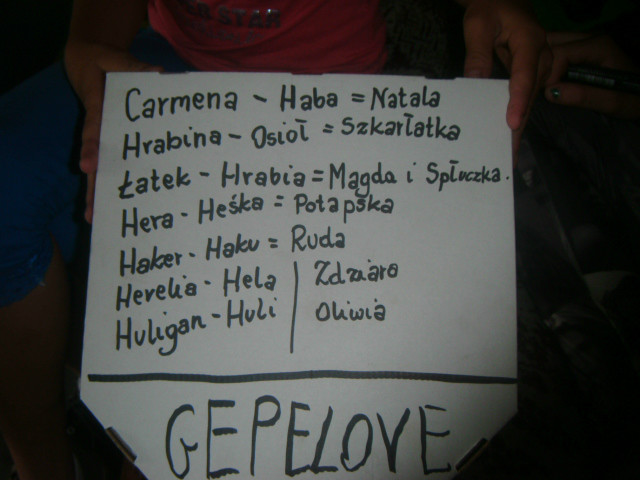 STAR
Carmena - Haba = Natala
Hrabina - Osioł = Szkarłatka
Łatek - Hrabia = Magda i Spłuczka.
Hera - Heśka = Potapska
Haker - Haku = Ruda
Herelia - Hela | Zdziara
Huligan - Huli | Oliwia
GEPELOVE